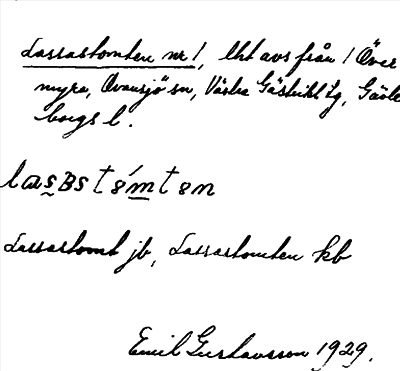 Lassastomten nr 1, lht avs från 1 Över
myra, Ovansjö sn, Västra Gästrikl tg, Gävle
borgs l.
Lassastomt jb, Lassastomten kb
Emil Gustavsson 1929.